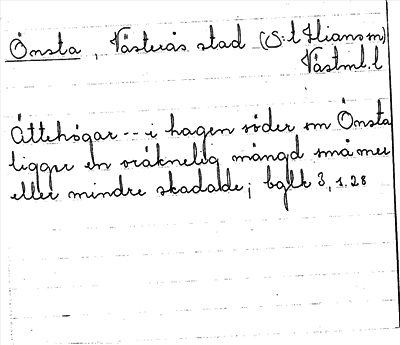 Önsta, Västerås stad (S:t Ilians m)
Västml. l
Ättehögar -- i hagen söder om Önsta
ligger en oräknelig mängd små mer
eller mindre skadade; bglk 3, 1.28